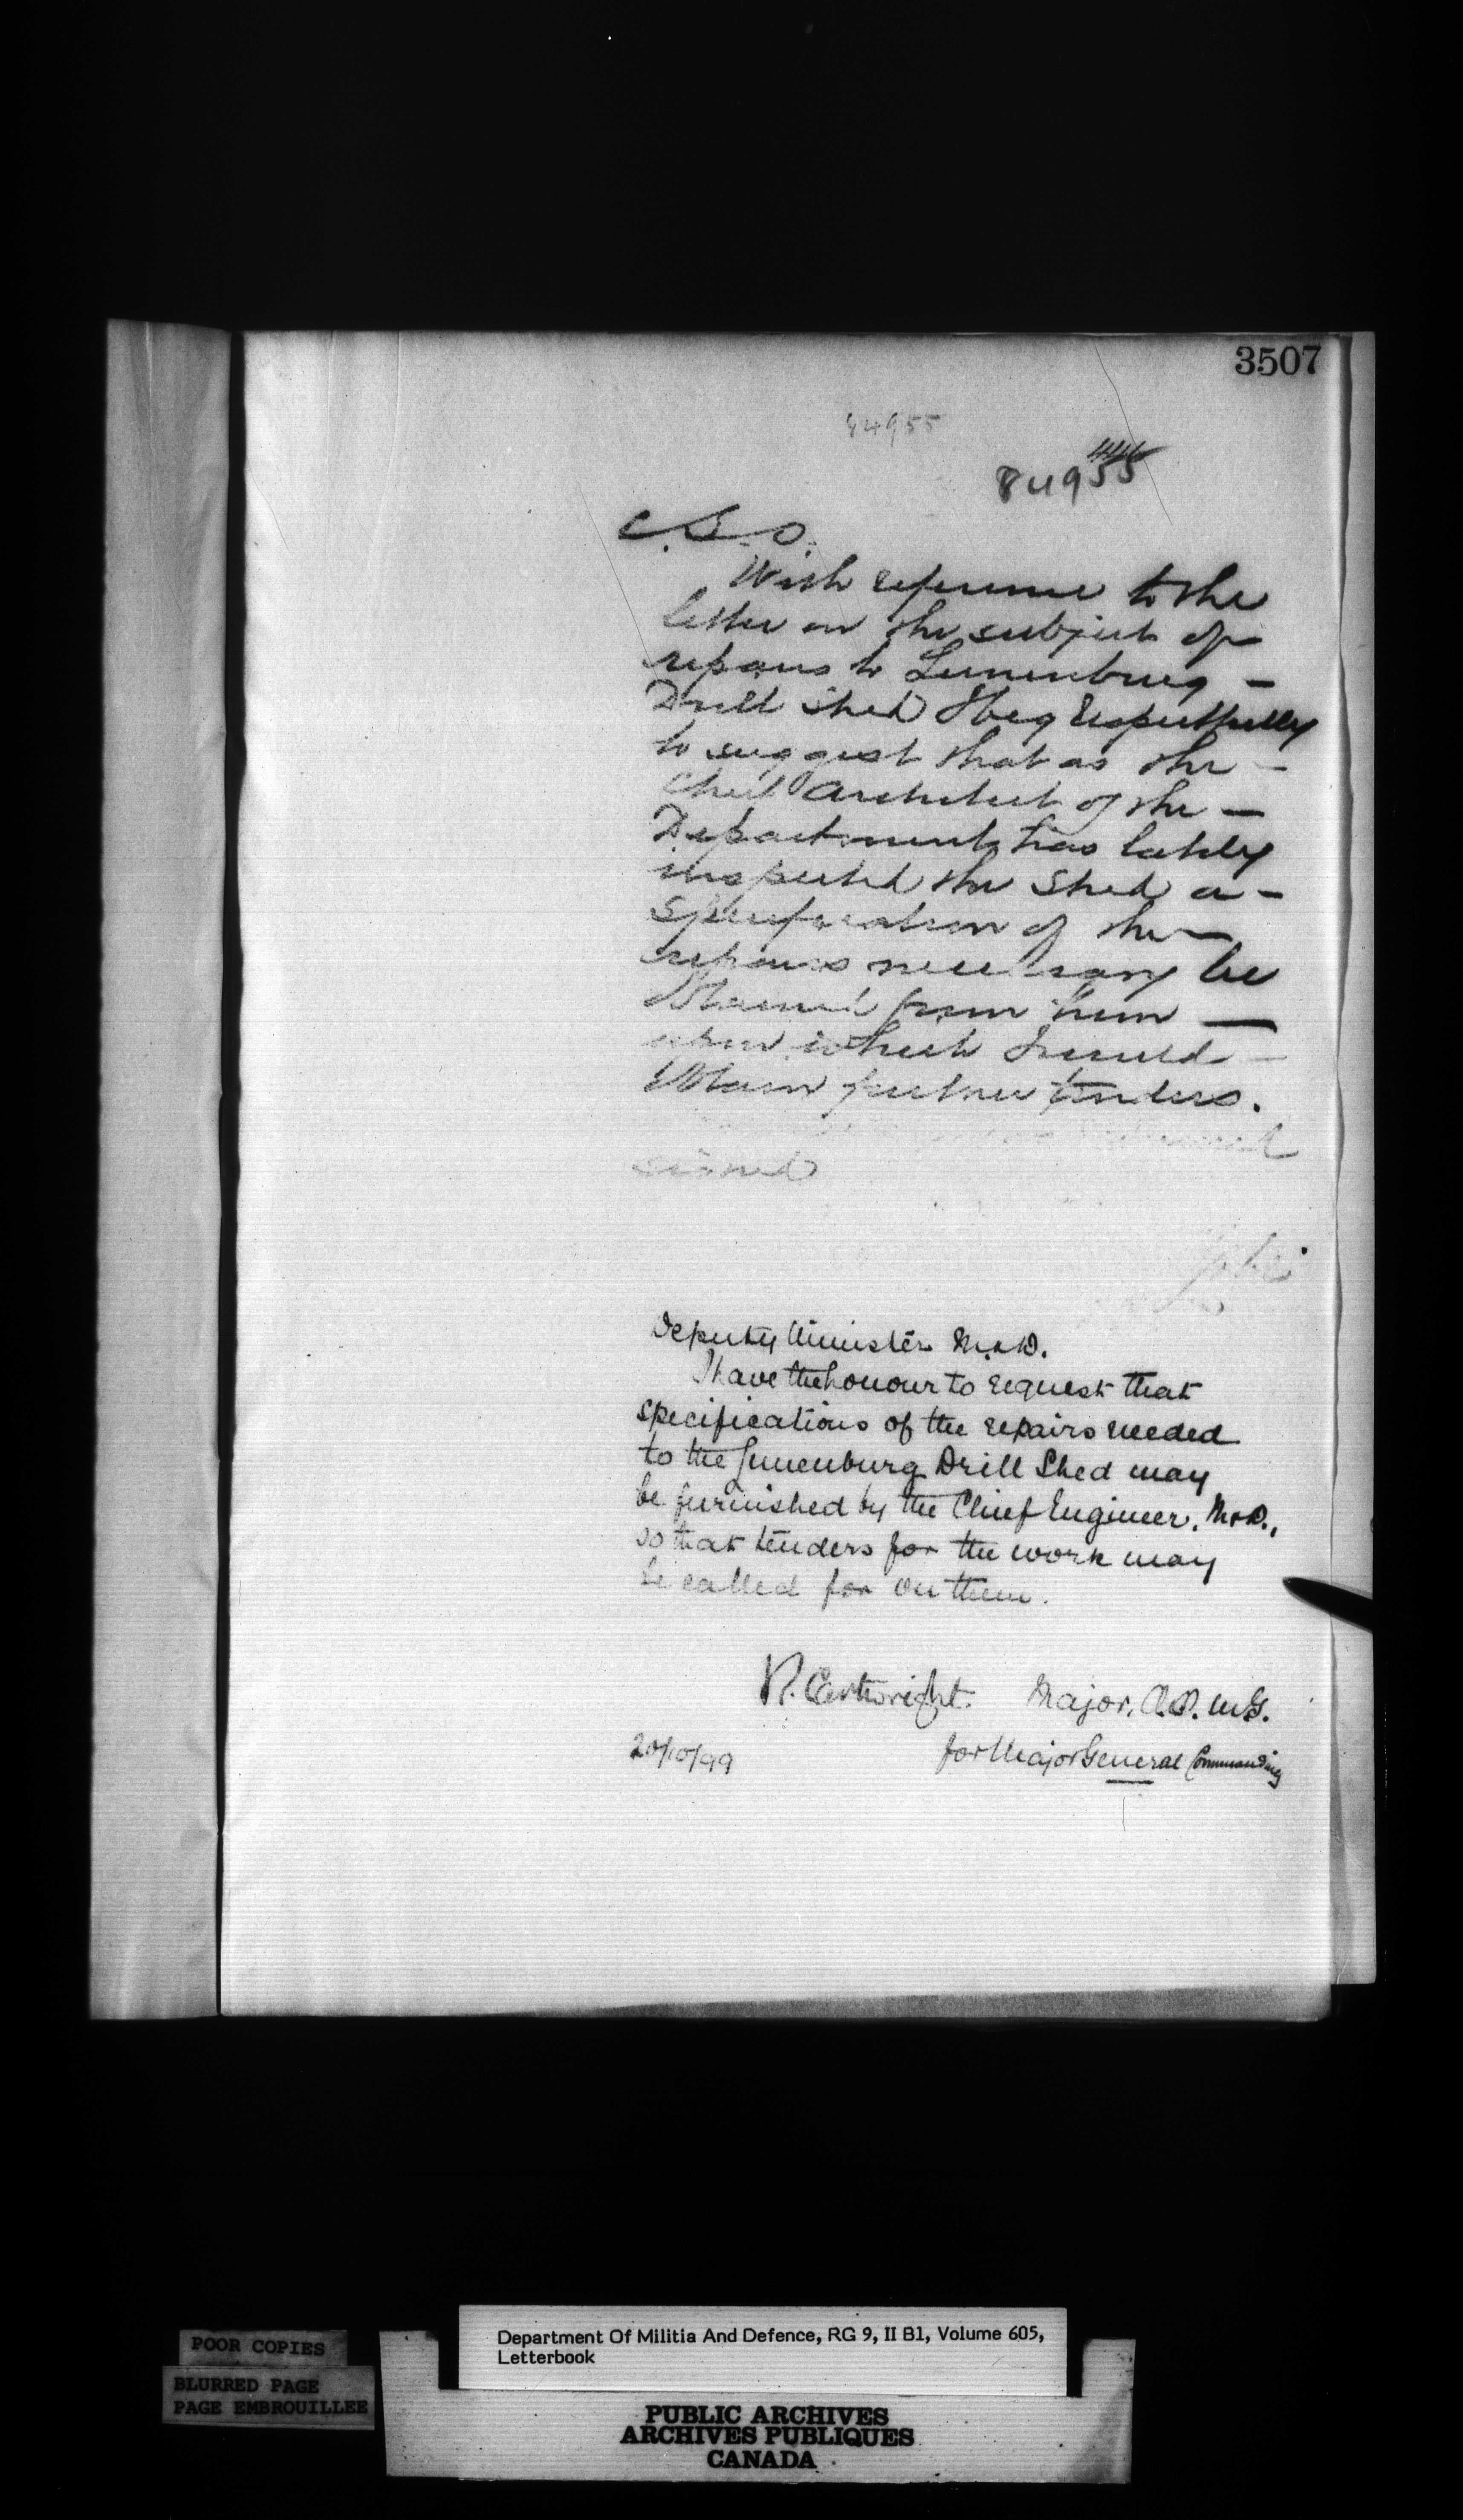 3507
84955
446
84955
C.S.O.
With reference to the
letter on the subject of
repairs to Lunenburg -
Drill Shed I beg respectfully
to suggest that as the -
Chief Architect of the -
Department has lately
inspected the Shed a -
Specification of the -
repairs necessary be
obtained from him -
upon which I would -
obtain further tenders.
signed
Deputy Minister M. & D.
I have the honour to request that
specifications of the repairs needed
to the Lunenburg Drill Shed may
be furnished by the Chief Engineer, M & D.,
so that tenders for the work may
be called for on them.
R. Cartwright. Major, A.A.G.
20/10/99
for Major General Commanding
POOR COPIES
BLURRED PAGE
PAGE EMBROUILLEE
Department Of Militia And Defence, RG 9, II B1, Volume 605,
Letterbook
PUBLIC ARCHIVES
ARCHIVES PUBLIQUES
CANADA